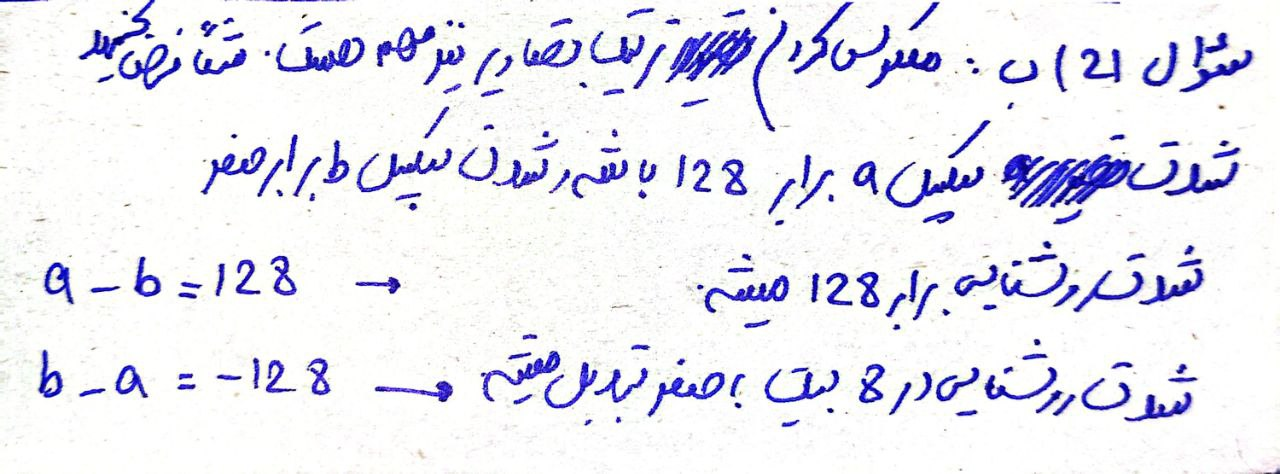 سوال 2) ب : معکوس کردن ترتیب تصاویر نیز مهم هست. مثلاً فرض کنید
شدت پیکسل a برابر 128 باشه و شدت پیکسل b برابر صفر
a - b = 128 → شدت روشنایی برابر 128 میشه.
b - a = -128 → شدت روشنایی در 8 بیت به صفر تبدیل میشه